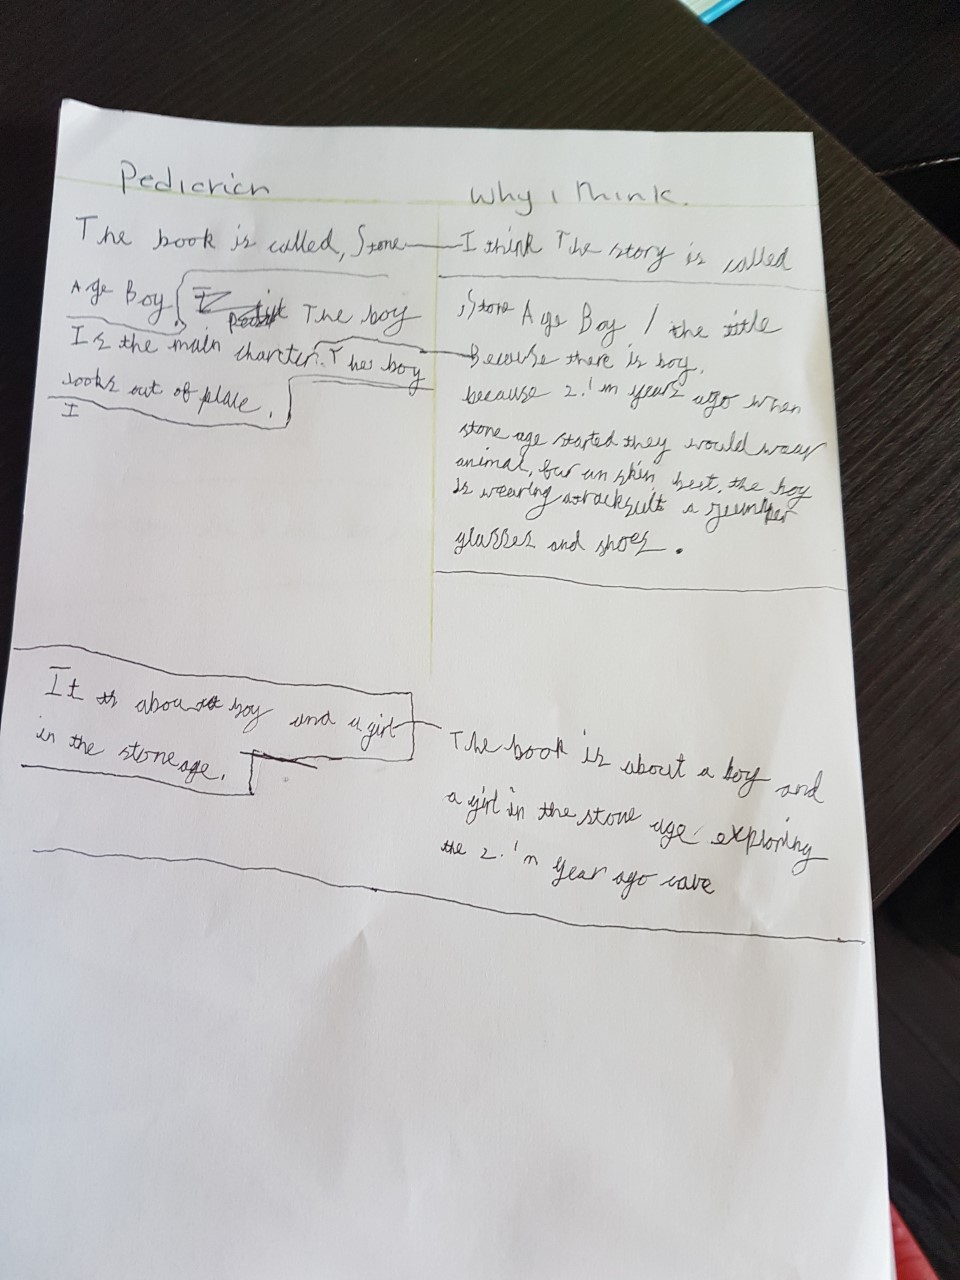 Pedicrion
Why i Think.
The book is called, Stone
Age Boy. The boy
Is the main charcter. The boy
looks out of place.
I
I think The story is called
,Stone Age Boy / the title
Because there is boy.
because 2.1m years ago when
stone age started they would wear
animal, fur an skin best. the boy
is wearing a tracksuit a jeumper
glasses and shoes.
It is about boy and a girl
in the stone age.
The book is about a boy and
a girl in the stone age exploring
the 2.1m year ago cave